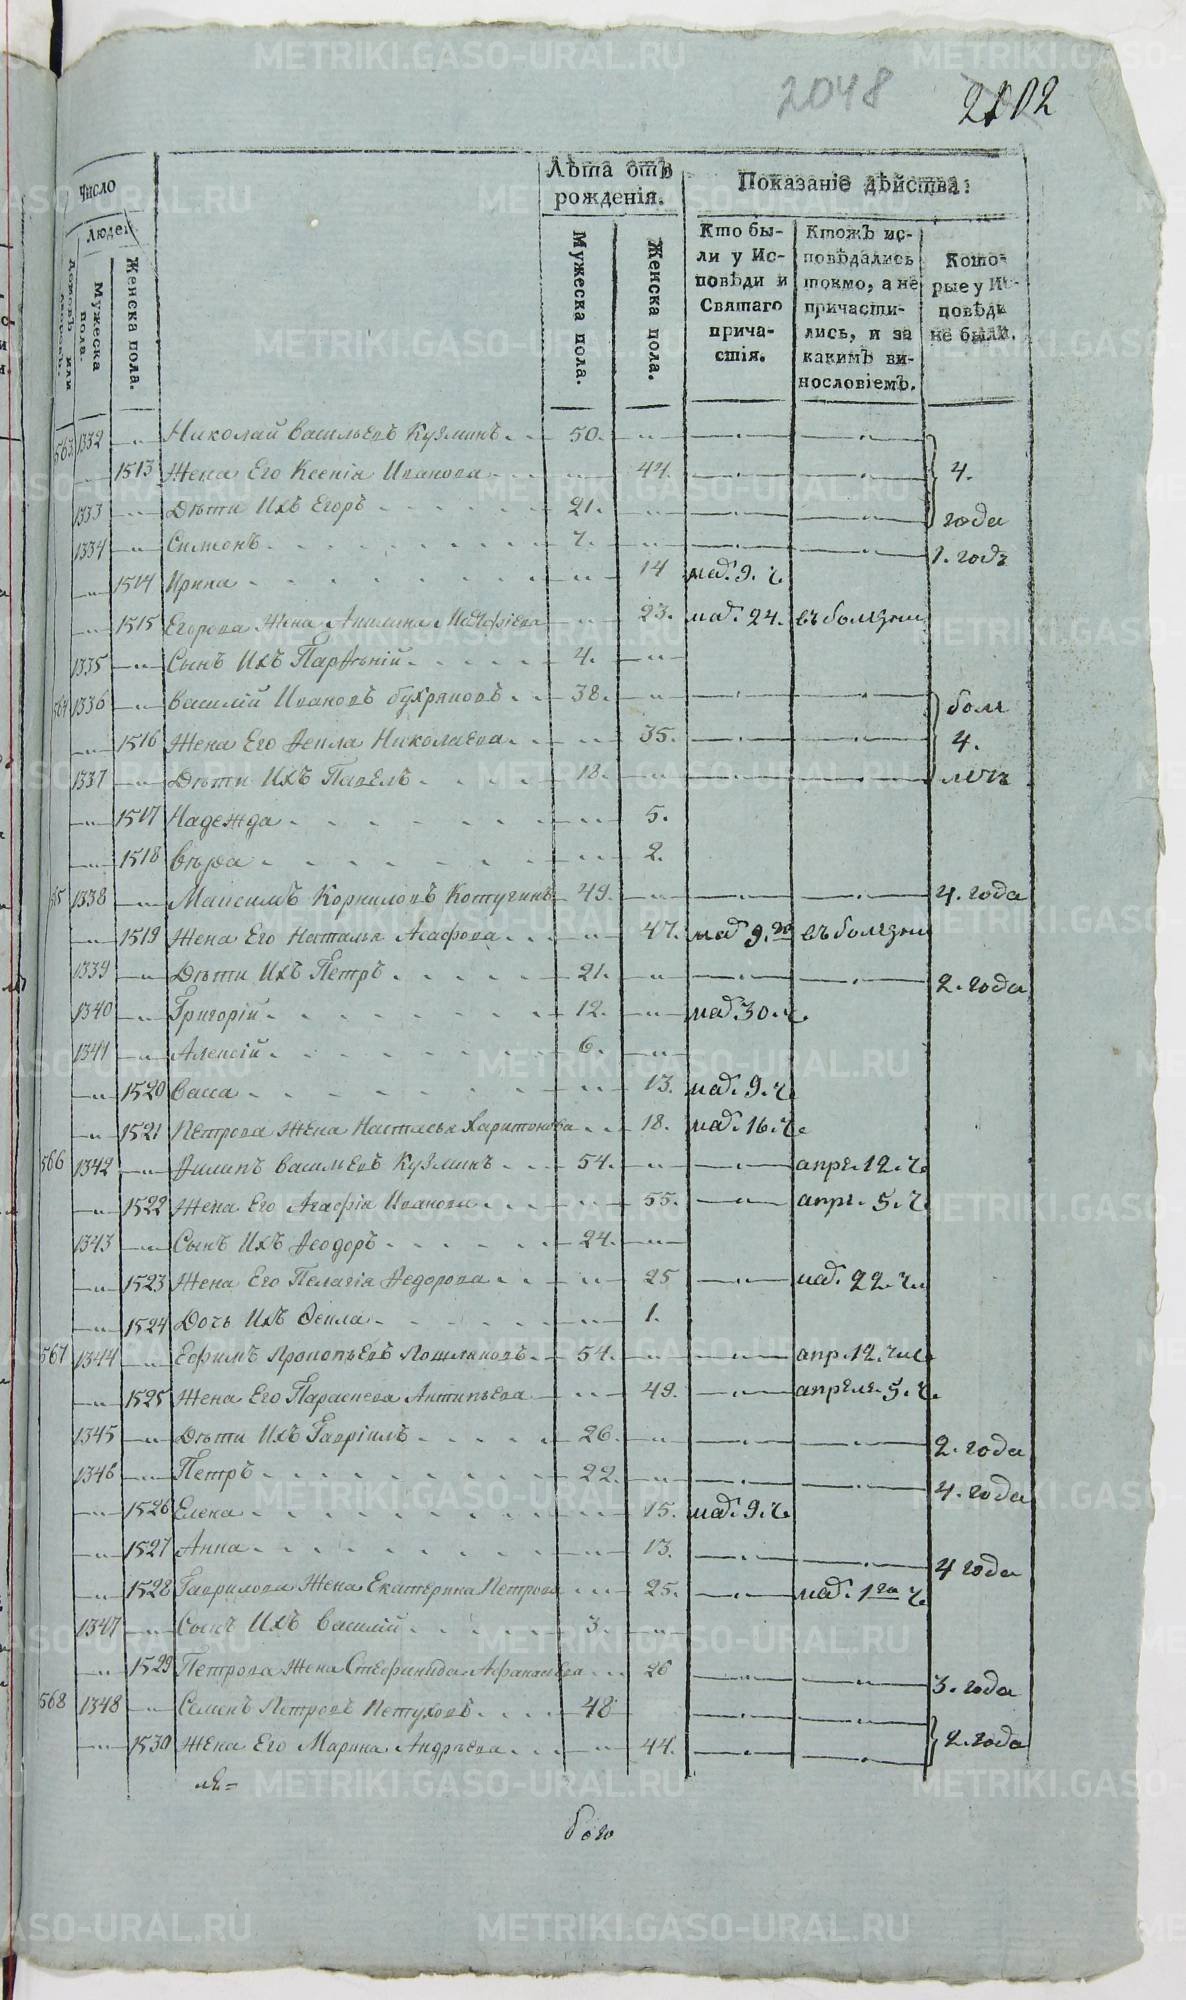 2048 2102
Число
Людей
Домовъ или
Мужеска пола.
Женска пола.
Лѣта отъ рожденія.
Мужеска пола.
Женска пола.
Показаніе дѣйства:
Кто бы-
ли у Ис-
повѣди и
Святаго
прича-
стія.
Ктожъ ис-
повѣдались
токмо, а не
причасти-
лись, и за
какимъ ви-
нословіемъ.
Кото-
рые у Ис-
повѣди
не были.
563 1332 Николай Васильевъ Кузминъ 50. 4.
1513 Жена Его Ксенія Иванова 44. года
1333 Дѣти Ихъ Егоръ 21.
1334 Симіонъ 7. 1. годъ
1514 Ирина 14 мар. 9. ч.
1515 Егорова Жена 23. мар. 24. въ болезни
1335 Сынъ Ихъ Парѳѣній 4.
564 1336 Василій Ивановъ Бухряковъ 38. боле
1516 Жена Его Ѳекла Николаева 35. 4.
1337 Дѣти Ихъ Павелъ 18. летъ
1517 Надежда 5.
1518 Вѣра 2.
565 1338 Максимъ Корниловъ Котугинъ 49. 4. года
1519 Жена Его Наталья Агафова 47. мар. 9. го въ болезни
1339 Дѣти Ихъ Петръ 21. 2. года
1340 Григорій 12. мар. 30. ч.
1341 Алексій 6.
1520 Васса 13. мар. 9. ч.
1521 Петрова Жена Настасья Харитонова 18. мар. 16. ч.
566 1342 Филипъ Васильевъ Кузминъ 54. апре. 12. ч.
1522 Жена Его Агафія Иванова 55. апре. 5. ч.
1343 Сынъ Ихъ Ѳеодоръ 24.
1523 Жена Его Пелагія Ѳедорова 25 мар. 22. ч.
1524 Дочь Ихъ Ѳекла 1.
567 1344 Ефимъ Прокопьевъ Ложкинъ 54. апр. 12. чис.
1525 Жена Его Параскева Антипьева 49. апреля. 5. ч.
1345 Дѣти Ихъ Гавріилъ 26. 2. года
1346 Петръ 22. 4. года
1526 Елена 15. мар. 9. ч.
1527 Анна 13. 4 года
1528 Гаврилова Жена Екатерина Петрова 25. мар. 1го ч.
1347 Сынъ Ихъ Василій 3.
1529 Петрова Жена Стефанида Афанасьева 26 3. года
568 1348 Семенъ Петровъ Петуховъ 48
1530 Жена Его Марина Андрѣева 44. 2. года